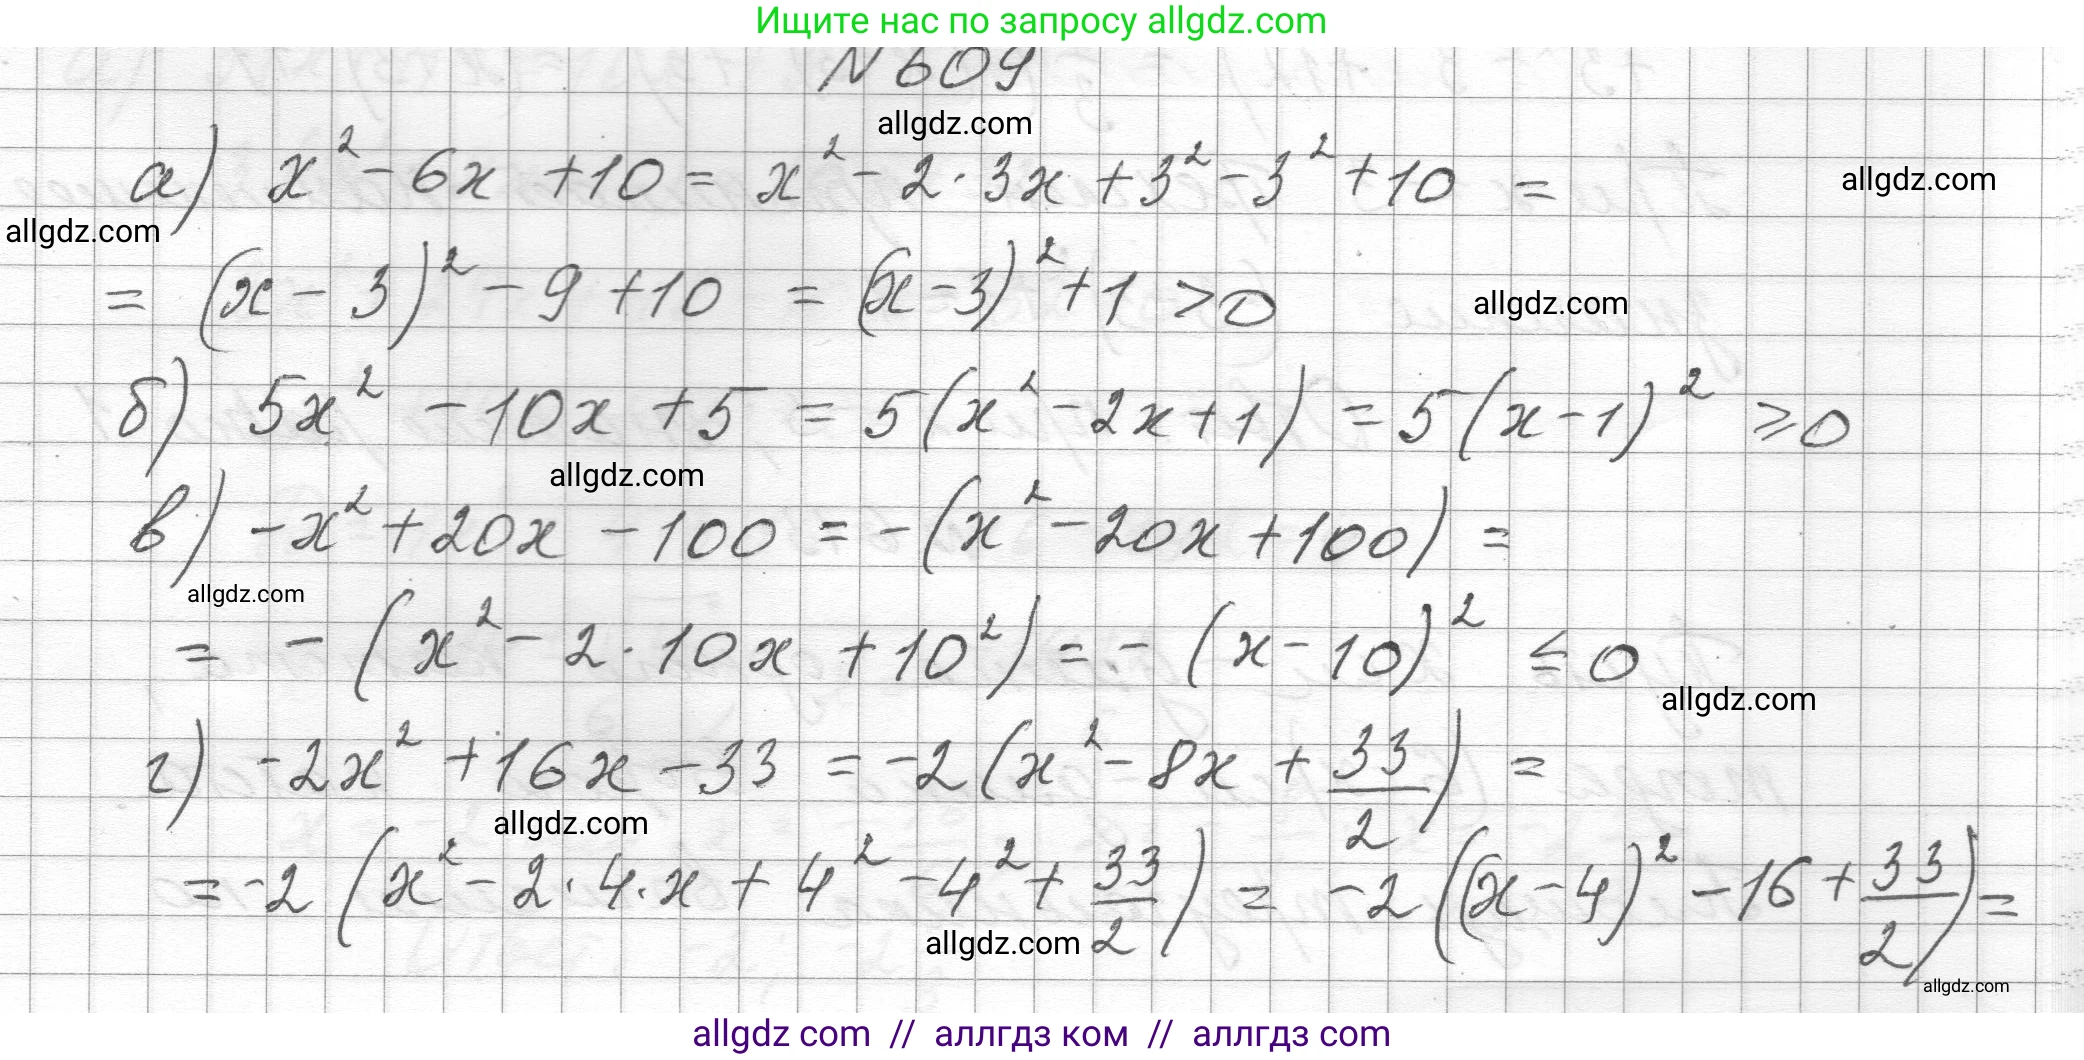 Ищите нас по запросу allgdz.com
N 609
allgdz.com
а) x² - 6x + 10 = x² - 2 · 3x + 3² - 3² + 10 =
allgdz.com
allgdz.com
= (x - 3)² - 9 + 10 = (x - 3)² + 1 > 0
allgdz.com
б) 5x² - 10x + 5 = 5(x² - 2x + 1) = 5(x - 1)² ⩾ 0
allgdz.com
в) -x² + 20x - 100 = -(x² - 20x + 100) =
allgdz.com
= - (x² - 2 · 10x + 10²) = - (x - 10)² ≤ 0
allgdz.com
г) -2x² + 16x - 33 = -2(x² - 8x + 33/2) =
allgdz.com
= -2 (x² - 2 · 4 · x + 4² - 4² + 33/2) = -2((x - 4)² - 16 + 33/2) =
allgdz.com
allgdz.com
allgdz com // аллгдз ком // allgdz.com